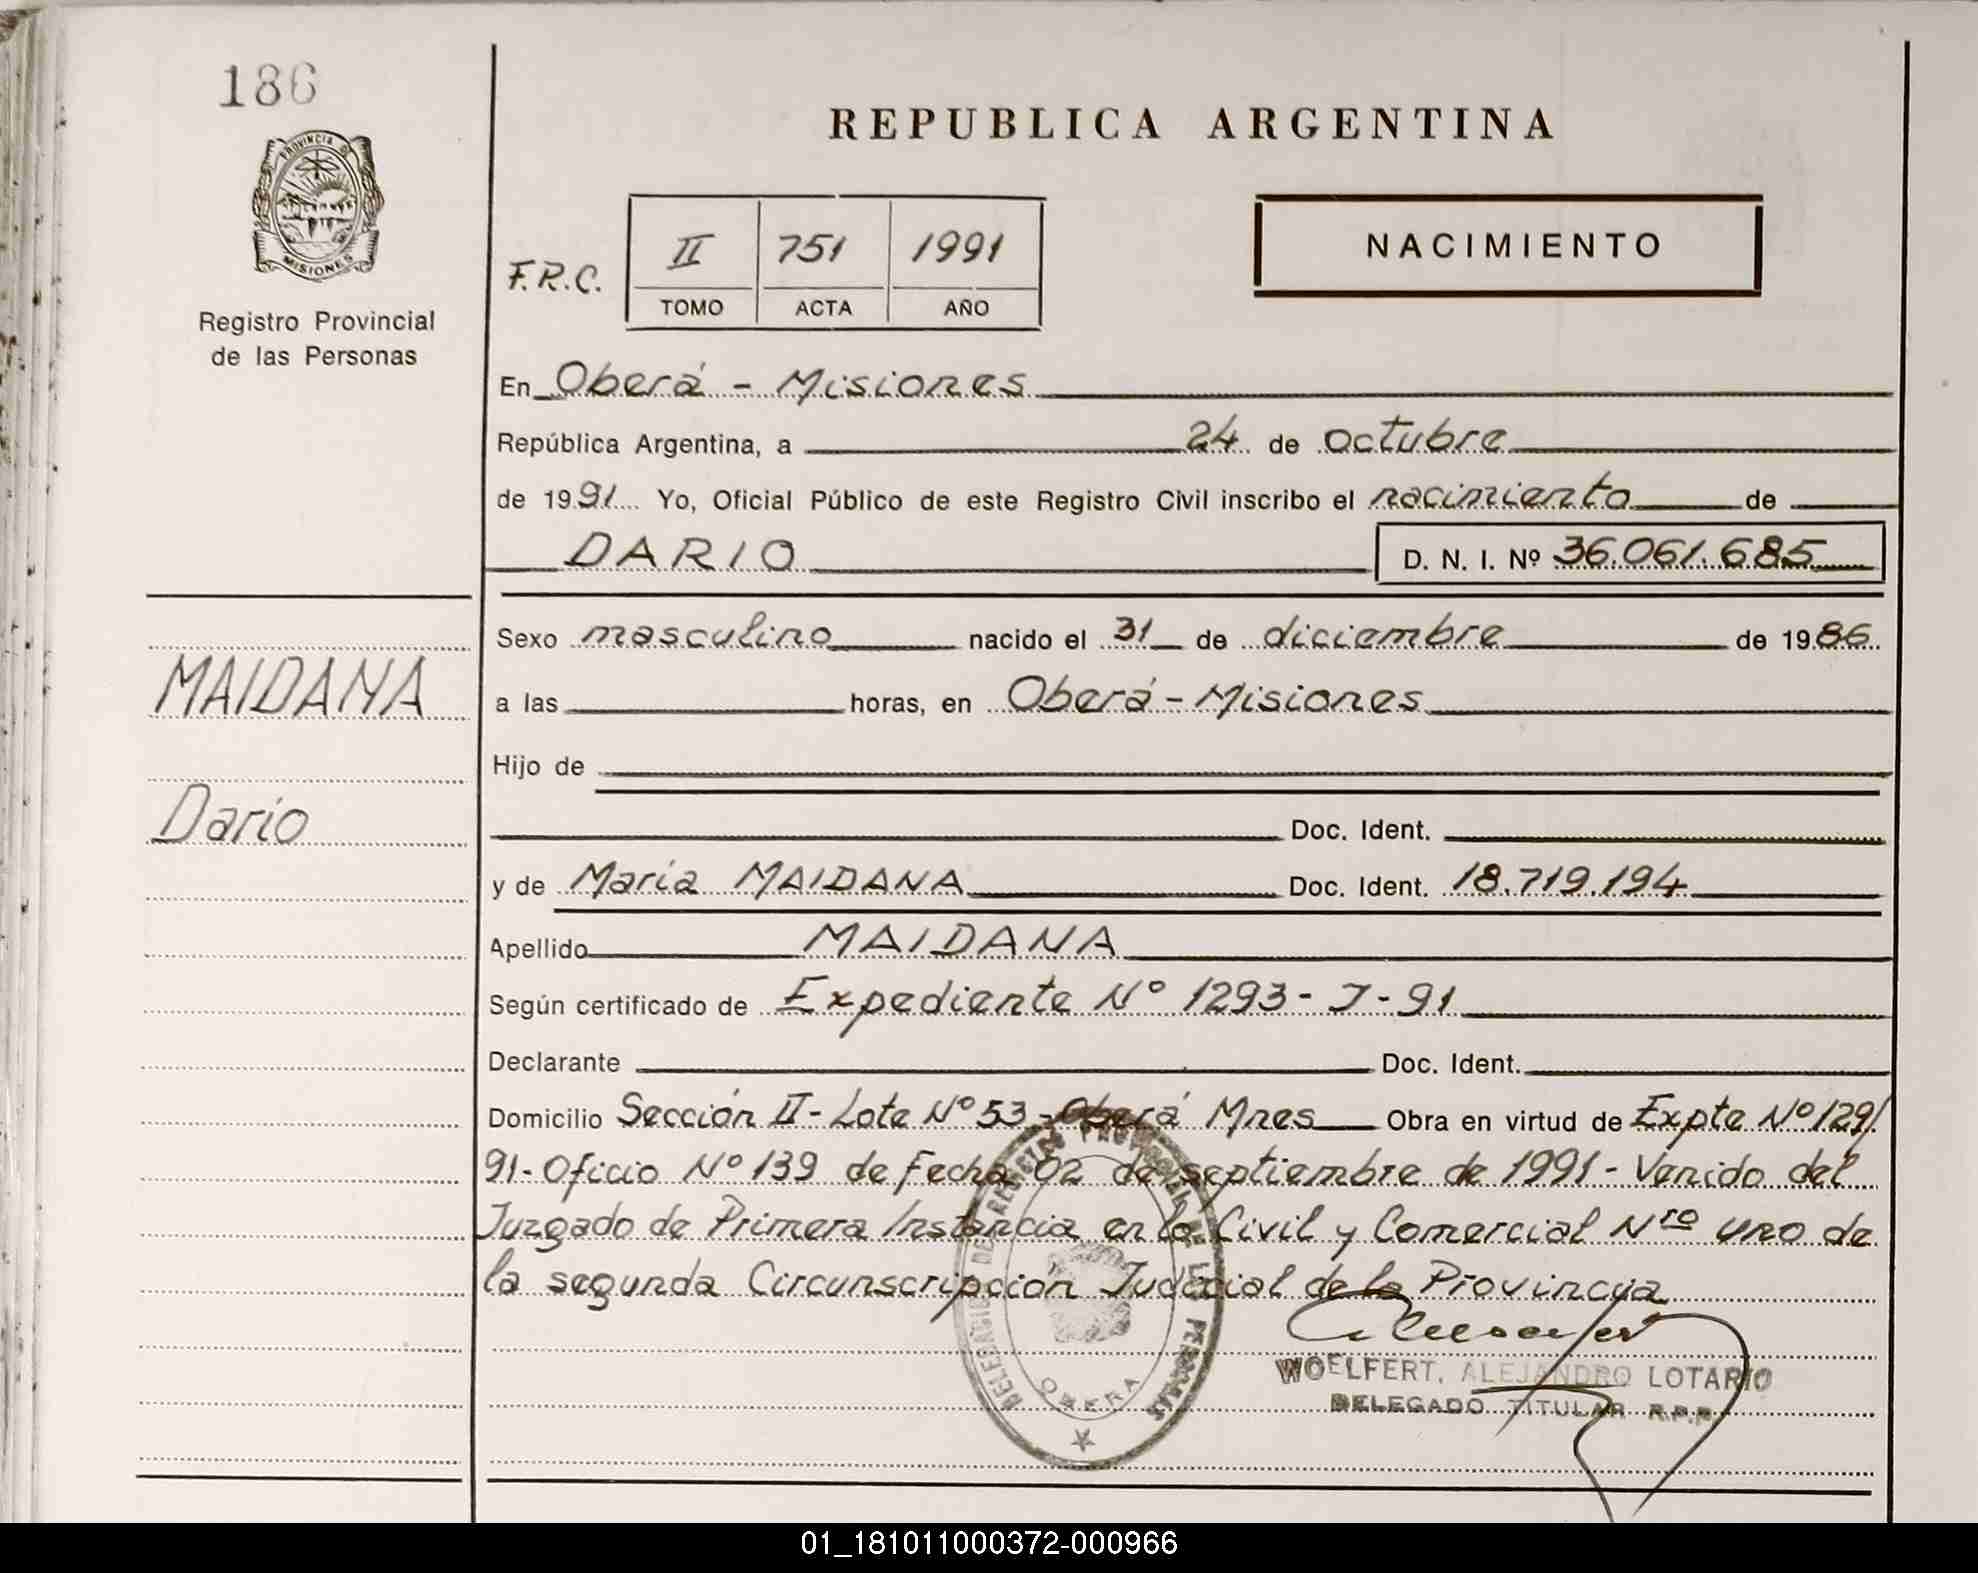 186
PROVINCIA D
MISIONES
Registro Provincial
de las Personas
REPUBLICA ARGENTINA
F.R.C.
II 751 1991
TOMO ACTA AÑO
NACIMIENTO
En Oberá - Misiones
República Argentina, a 24 de octubre
de 1991 Yo, Oficial Público de este Registro Civil inscribo el nacimiento de
DARIO D. N. I. Nº 36.061.685
Sexo masculino nacido el 31 de diciembre de 1986
MAIDANA
a las horas, en Oberá - Misiones
Hijo de
Dario
Doc. Ident.
y de María MAIDANA Doc. Ident. 18.719.194
Apellido MAIDANA
Según certificado de Expediente Nº 1293 - J - 91
Declarante Doc. Ident.
Domicilio Sección II - Lote Nº 53 - Oberá Mnes Obra en virtud de Expte Nº 129/
91 - Oficio Nº 139 de Fecha 02 de septiembre de 1991 - Venido del
Juzgado de Primera Instancia en lo Civil y Comercial Nro uno de
la segunda Circunscripcion Judicial de la Provincya
DELEGACION DEL REGISTRO PROVINCIAL DE LAS PERSONAS
OBERA
WOELFERT, ALEJANDRO LOTARIO
DELEGADO TITULAR R.P.P.
01_181011000372-000966